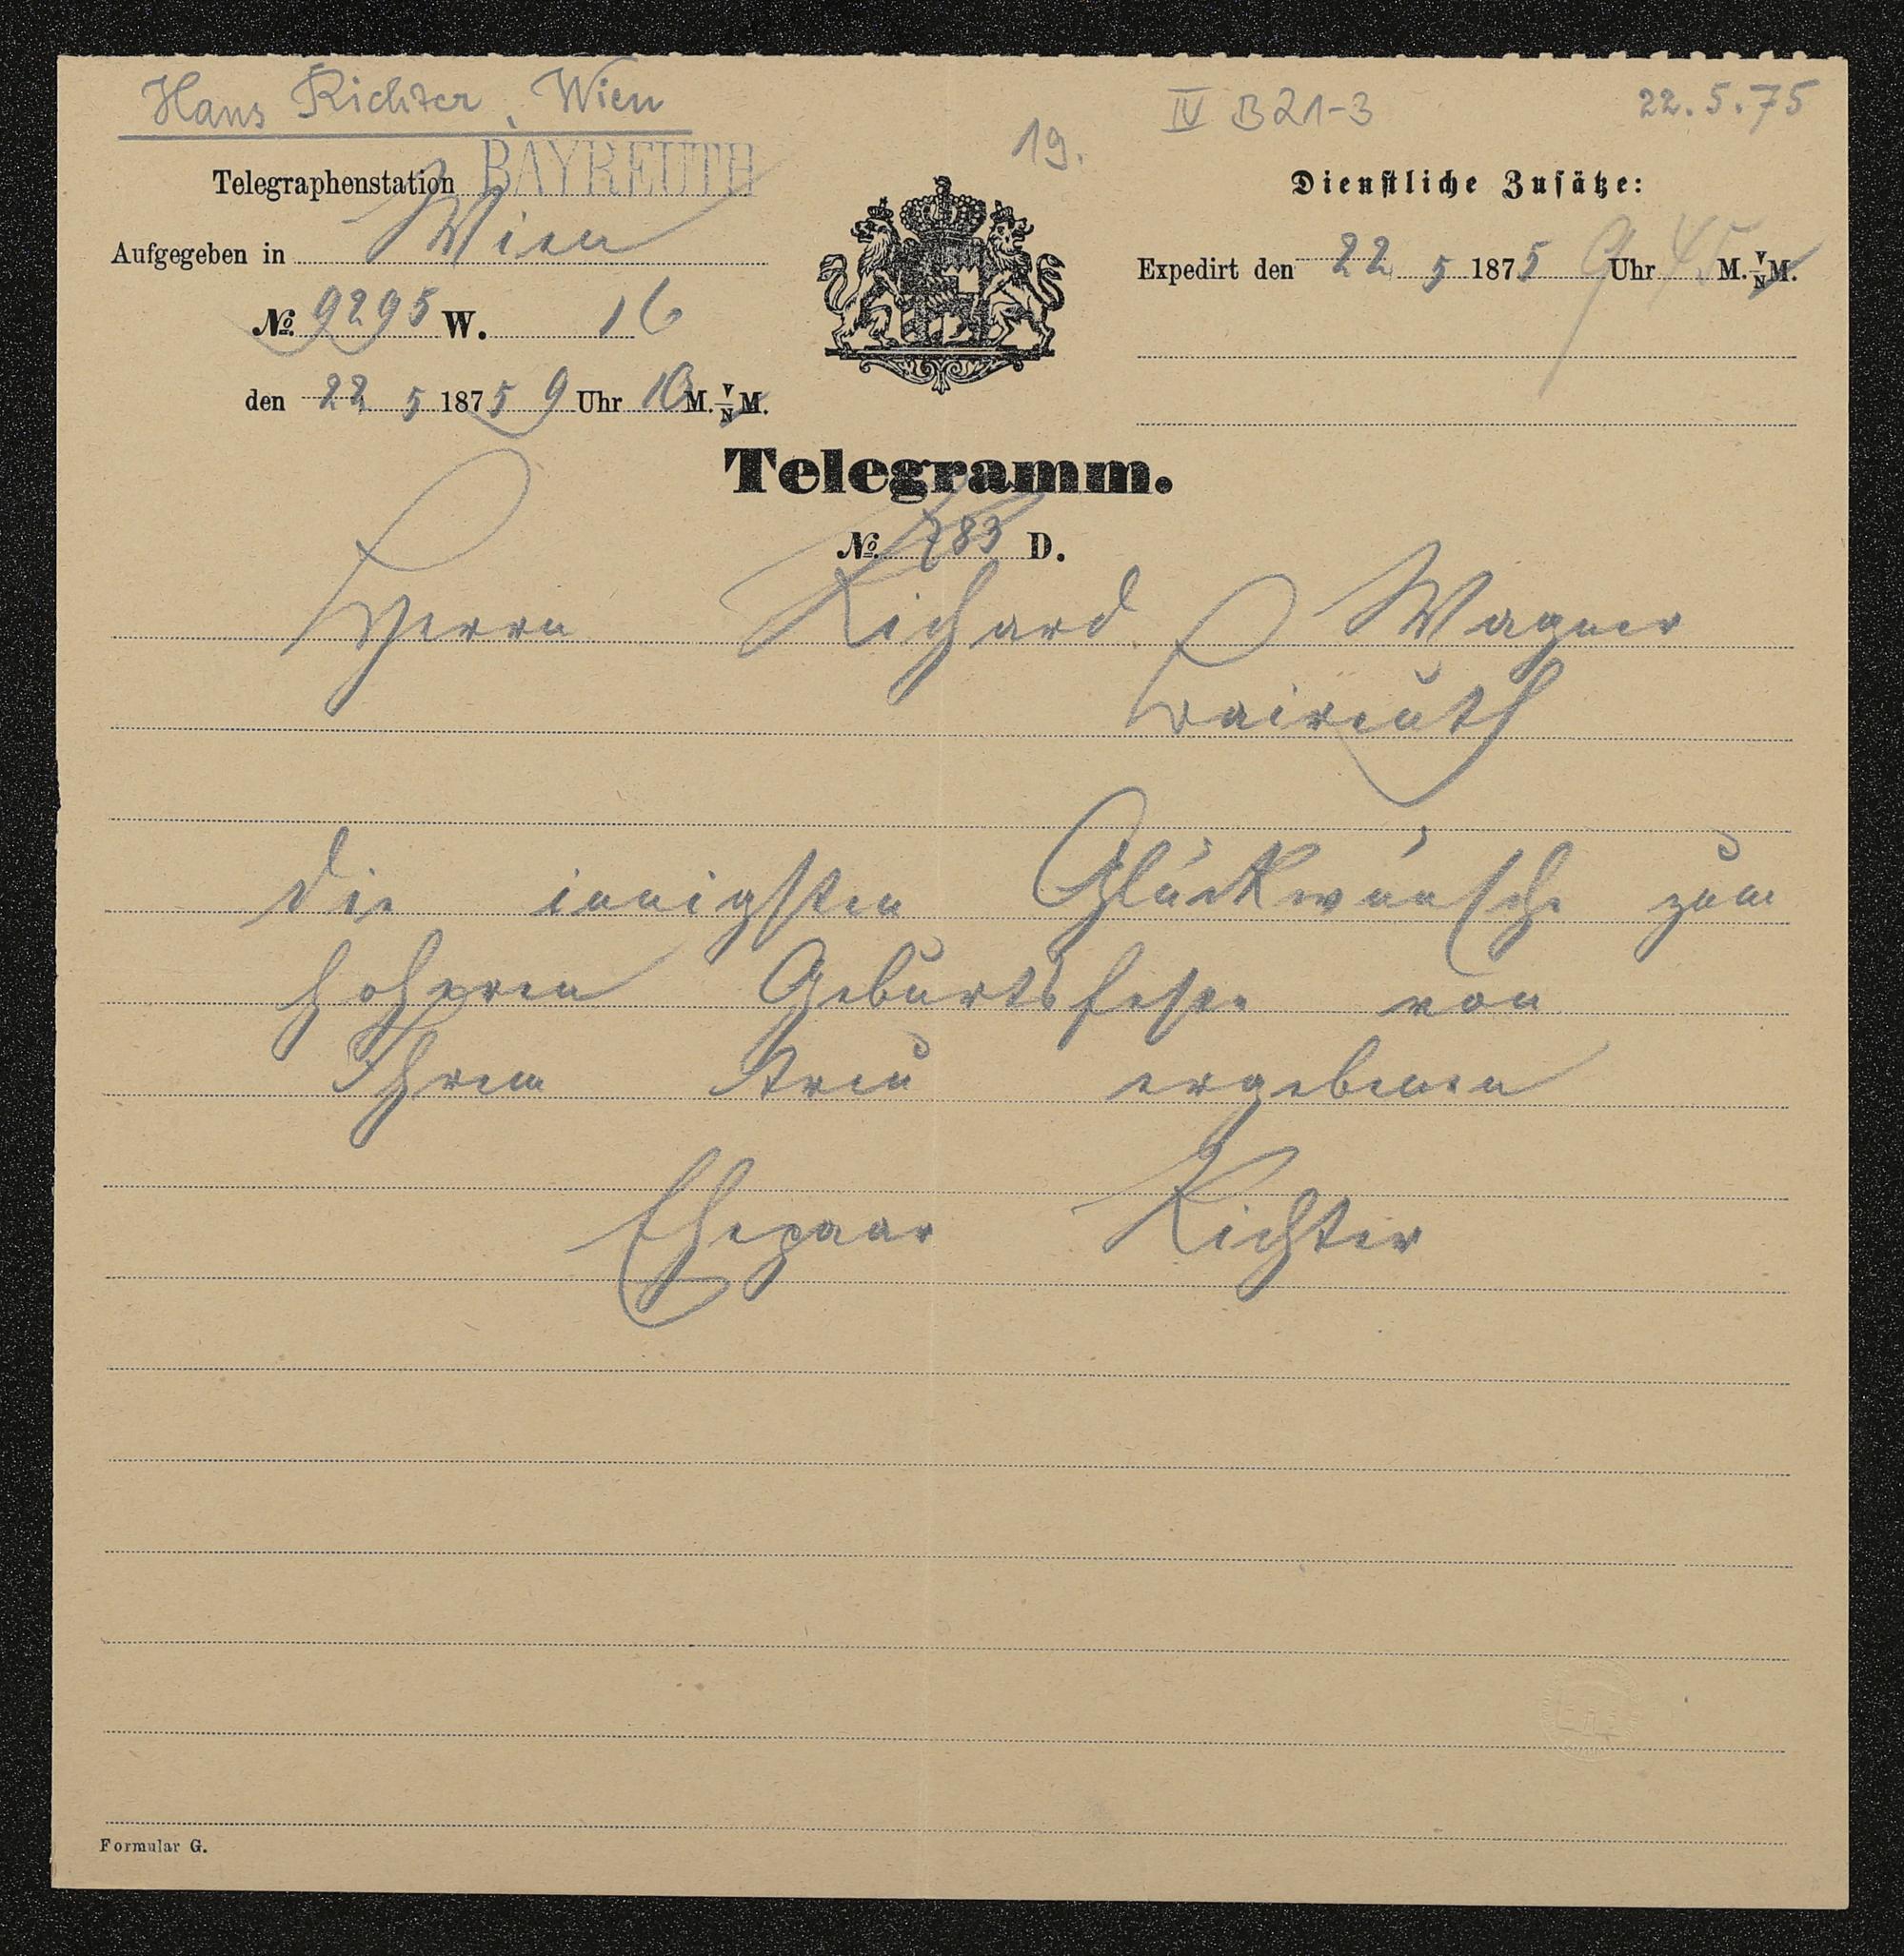 Hans Richter, Wien
19.
IV B 21-3
22.5.75
Telegraphenstation BAYREUTH
Aufgegeben in Wien
No. 9295 W. 16
den 22 5 1875 9 Uhr 10 M. V/N M.
Dienstliche Zusätze:
Expedirt den 22 5 1875 9 Uhr 45 M. V/N M.
Telegramm.
No. 283 D.
Herrn Richard Wagner
Baireuth
die innigsten Glückwünsche zum
Geburtsfeste von
Ihrem treu ergebenen
Ehepaar Richter
Formular G.